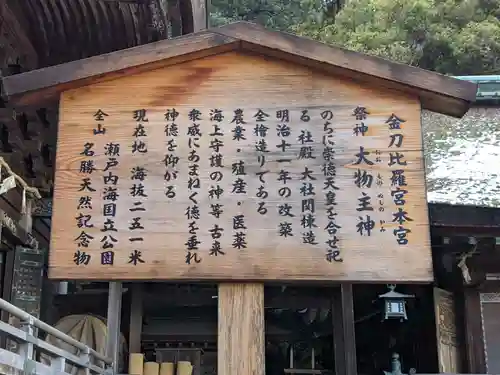 金刀比羅本宮
祭神 大物主神
おお もの ぬしの かみ
のちに崇徳天皇を合せ祀
る 社殿 大社関棟造
明治十一年の改築
全檜造りである
農業・殖産・医薬
海上守護の神等古来
衆威にあまねく徳を垂れ
神徳を仰がる
現在地 海抜二五一米
瀬戸内海国立公園
全山 名勝天然記念物